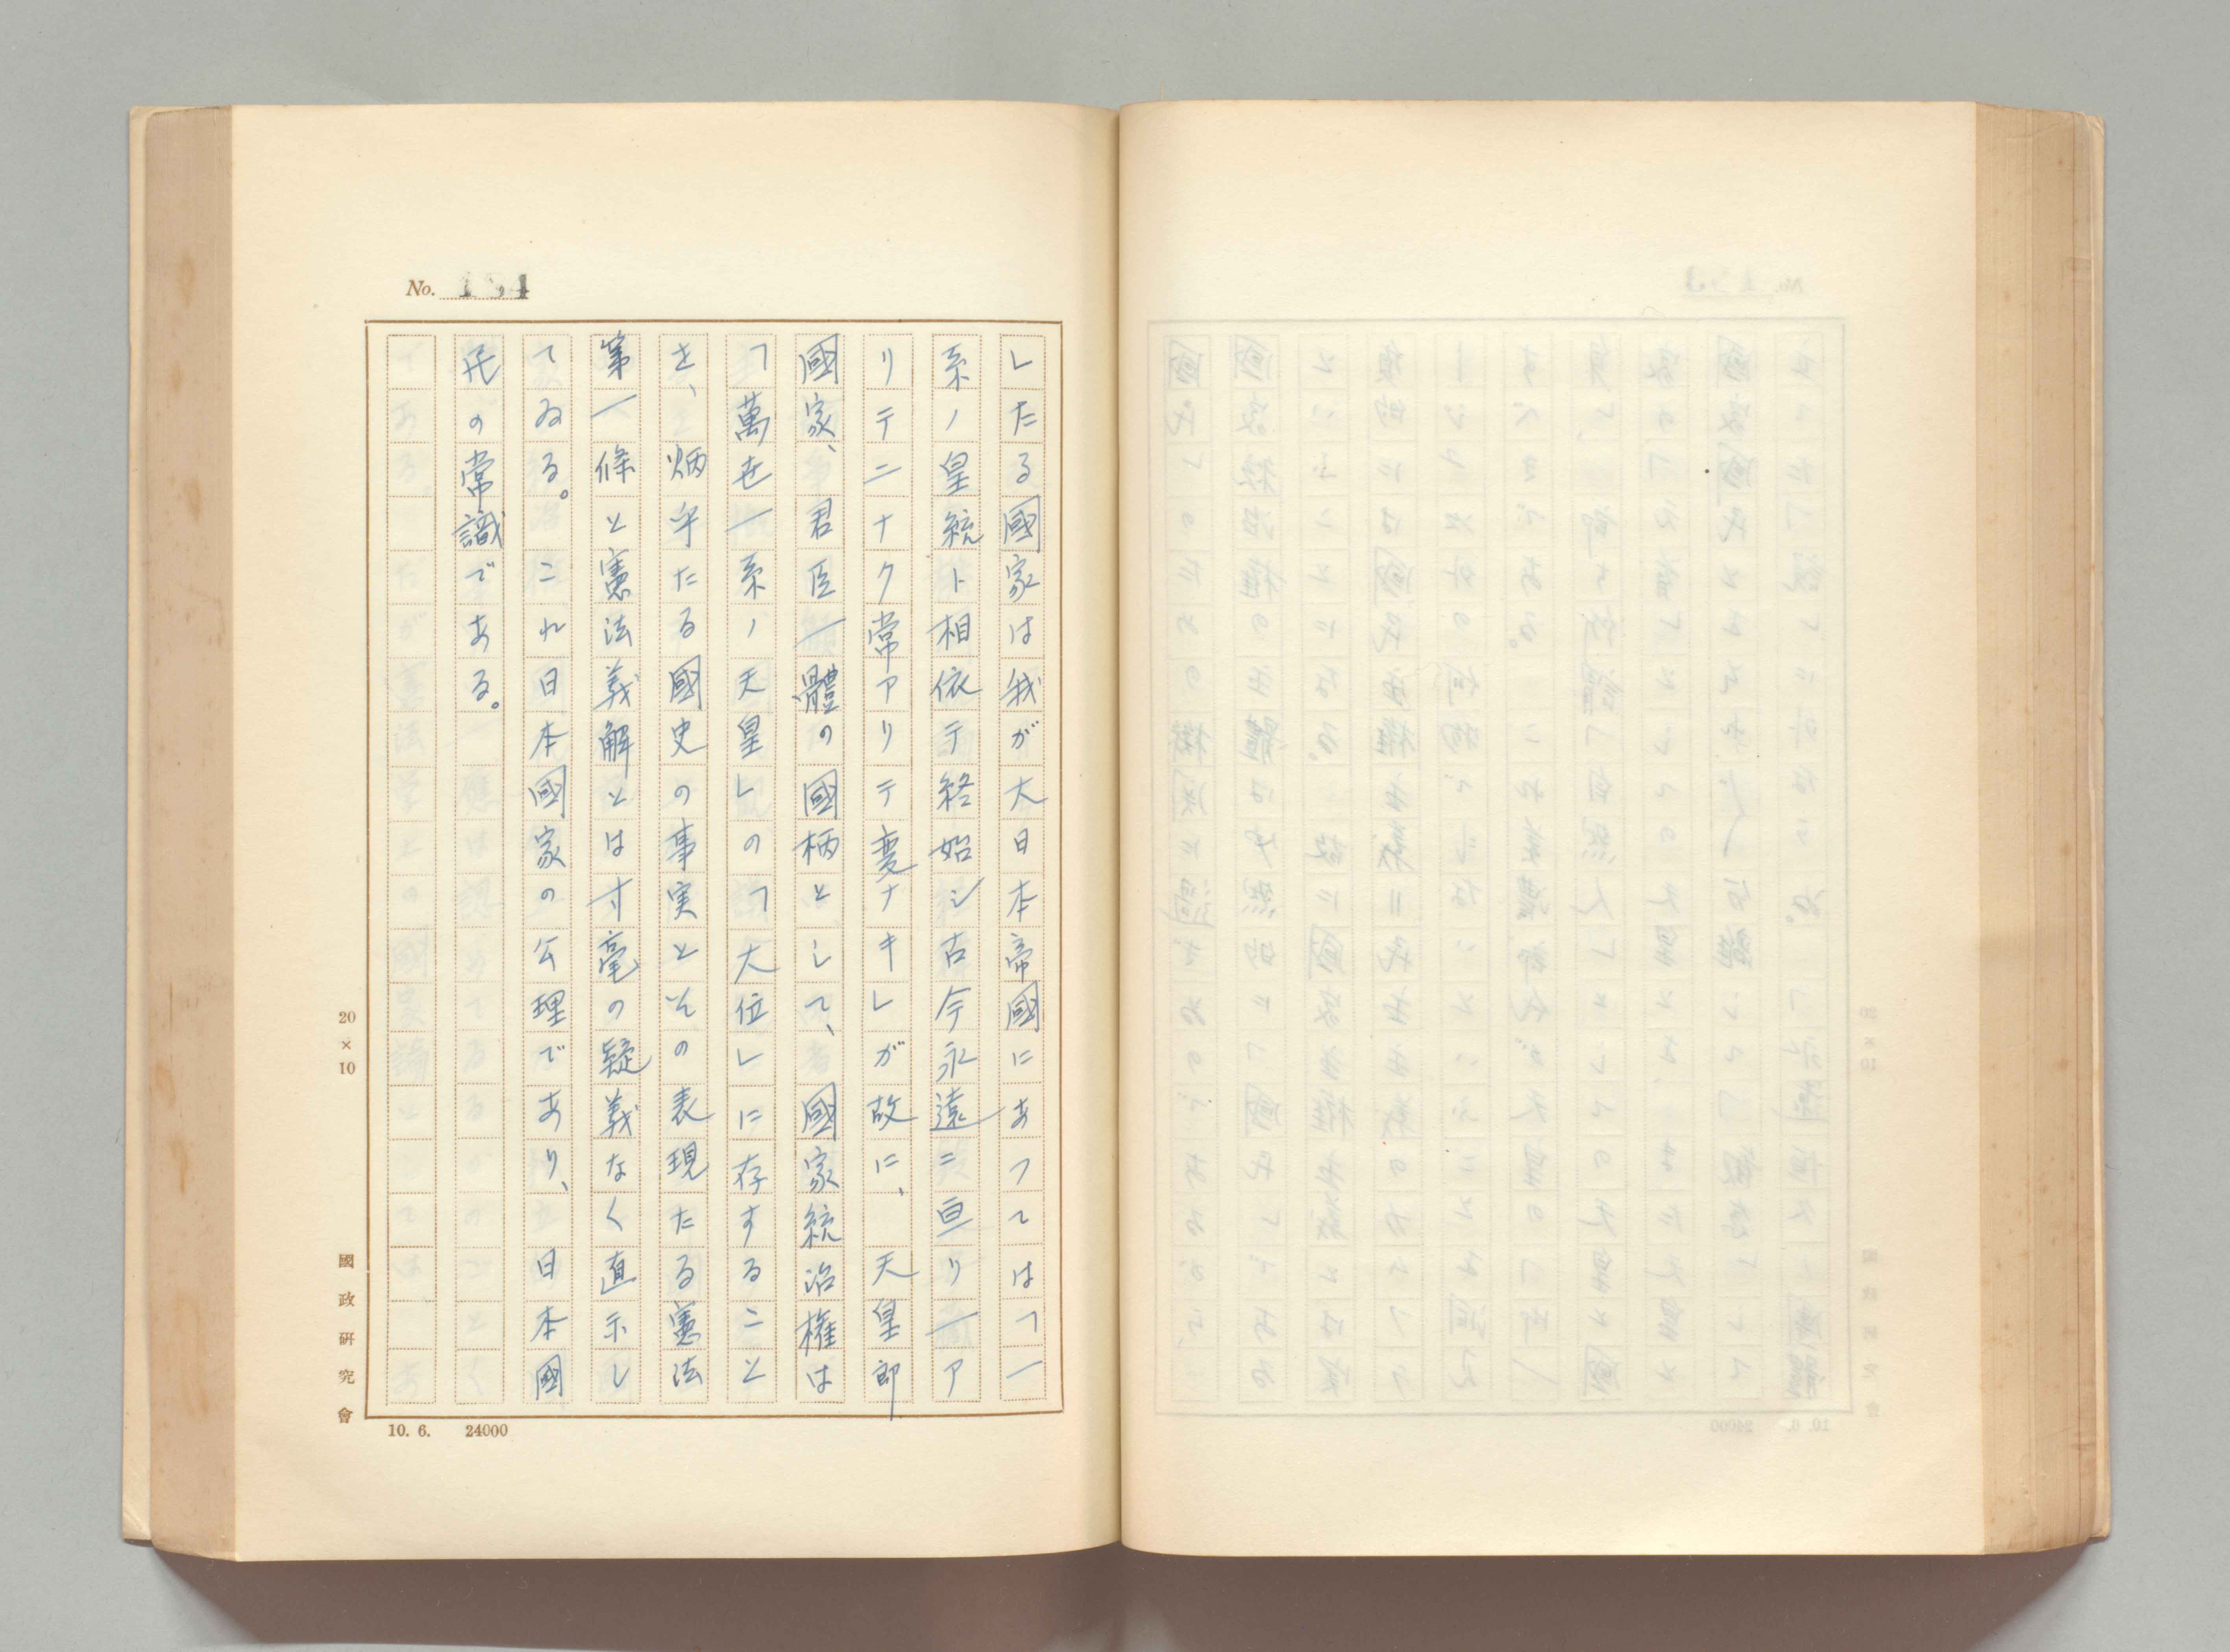 No. 134
したる國家は我が大日本帝國にあつては「一
系ノ皇統ト相依テ終始シ古今永遠ニ亘リ一ア
リテ二ナク常アリテ変ナキ」が故に、天皇即
國家、君臣一體の國柄として、國家統治権は
「萬世一系ノ天皇」の「大位」に存すること
を、炳乎たる國史の事実とその表現たる憲法
第一條と憲法義解とは寸毫の疑義なく直示し
てゐる。これ日本國家の公理であり、日本國
民の常識である。
20×10
國政研究會
10. 6. 24000